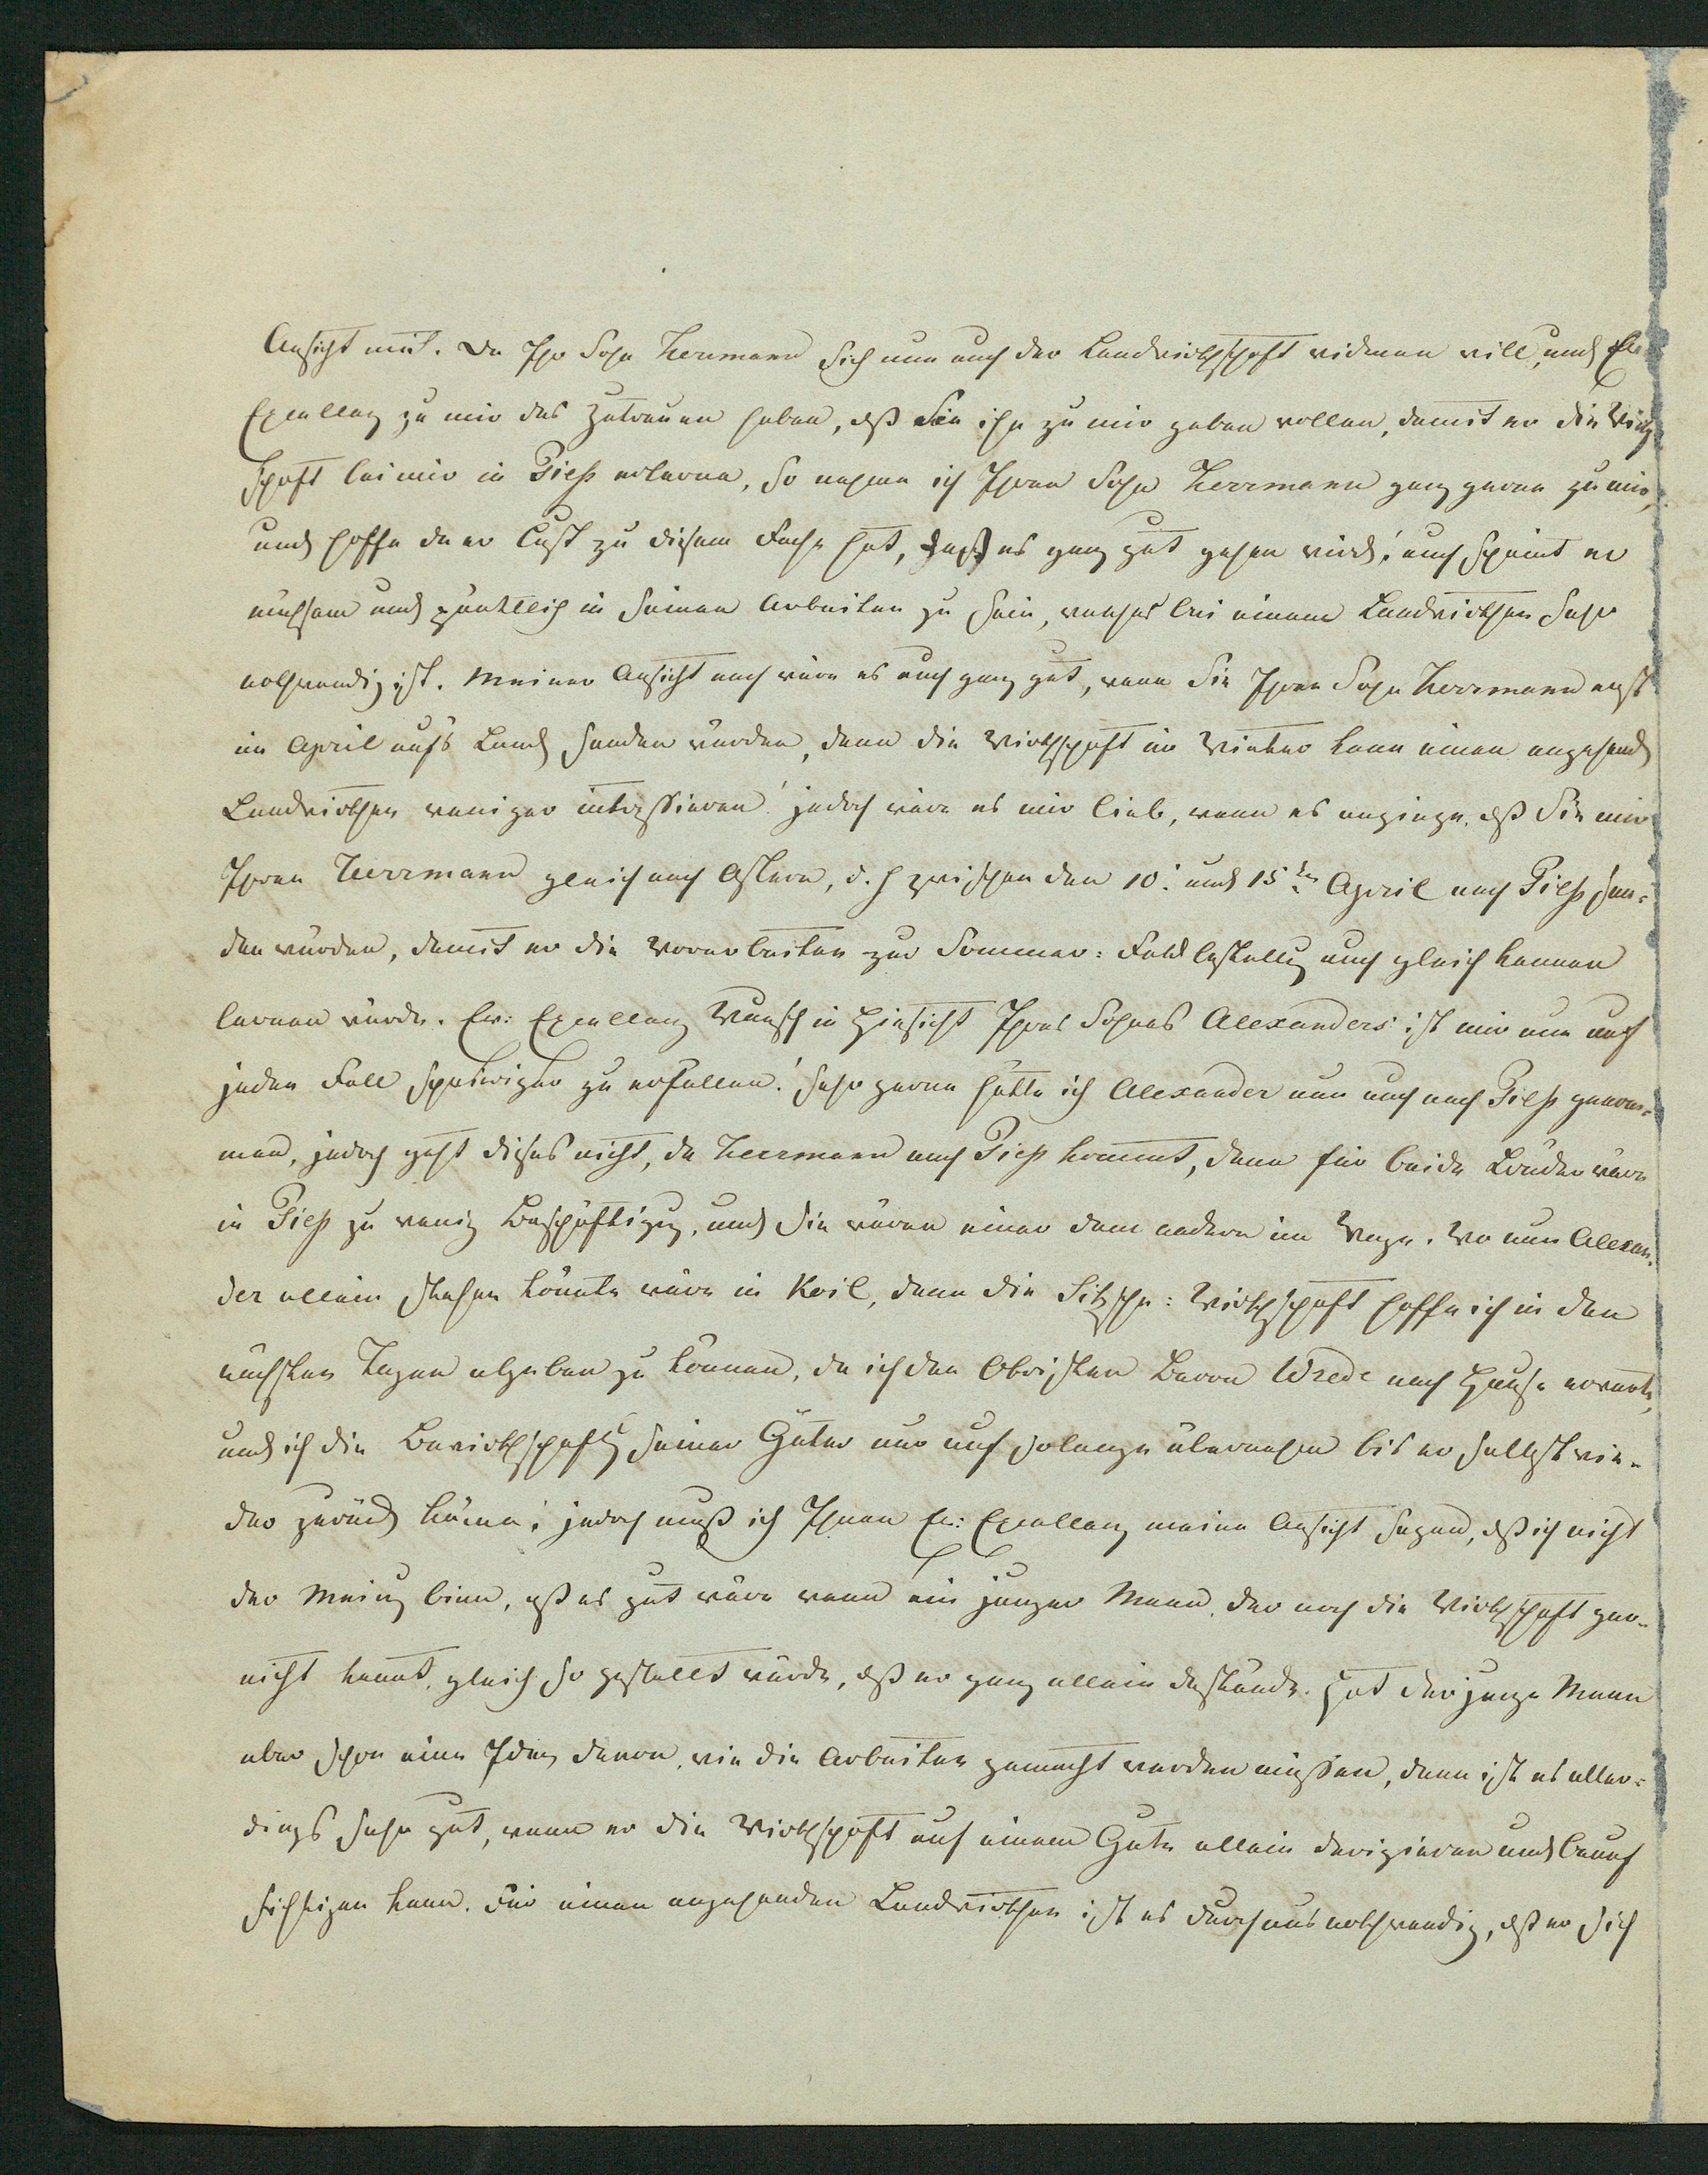 Ansicht mit. Da Ihr Sohn Herrmann sich nun auch der Landwirthschaft widmen will, und Ew:
Excellenz zu mir das Zutrauen haben, daß Sie ihn zu mir geben wollen, damit er die Wirth
schaft bei mir in Piep erlerne, so nehme ich Ihren Sohn Herrmann ganz gerne zu mir,
und hoffe da er Lust zu diesem Fache hat, daß es ganz gut gehen wird; auch scheint er
achtsam und pünktlich in seinen Arbeiten zu sein, welches bei einem Landwirthen sehr
nothwendig ist. Meiner Ansicht nach wäre es auch ganz gut, wenn Sie Ihren Sohn Herrmann erst
im April aufs Land senden würden, denn die Wirthschaft im Winter kann einen angehend
Landwirthen weniger intressieren; jedoch wäre es mir lieb, wenn es anginge, daß Sie mir
Ihren Herrmann gleich nach Ostern, d. h zwischen den 10. und 15ten April nach Piep sen-
den würden, damit er die Vorarbeiten zur Sommer: Feldbestellung auch gleich kennen
lernen würde. Ew: Excellenz Wunsch in Hinsicht Ihres Sohnes Alexanders ist mir nun auf
jeden Fall schwieriger zu erfüllen! sehr gerne hätte ich Alexander nun auch nach Piep genom-
men, jedoch geht dieses nicht, da Herrmann nach Piep kommt, denn für beide Brüder wäre
in Piep zu wenig Beschäftigung, und sie wären einer dem andern im Wege. Wo nun Alexan-
der allein stehen könnte wäre in Koil, denn die Wirthschaft hoffe ich in den
nächsten Tagen abgeben zu können, da ich den Obristen Baron Wrede nach Hause erwarte,
und ich die Bewirthschaftung seiner Güter nur auf solange übernahm bis er selbst wie-
der zurück käme; jedoch muß ich Ihnen Ew: Excellenz meine Ansicht sagen, daß ich nicht
der Meinung binn, daß es gut wäre wenn ein junger Mann, der noch die Wirthschaft gar-
nicht kennt, gleich so gestellt würde, daß er ganz allein dastände. Hat der junge Mann
aber schon eine Idee davon, wie die Arbeiten gemacht werden müssen, dann ist es aller-
dings sehr gut, wenn er die Wirthschaft auf einem Gute allein derigieren und beauf
sichtigen kann. Für einen angehenden Landwirthen ist es durchaus nothwendig, daß er sich